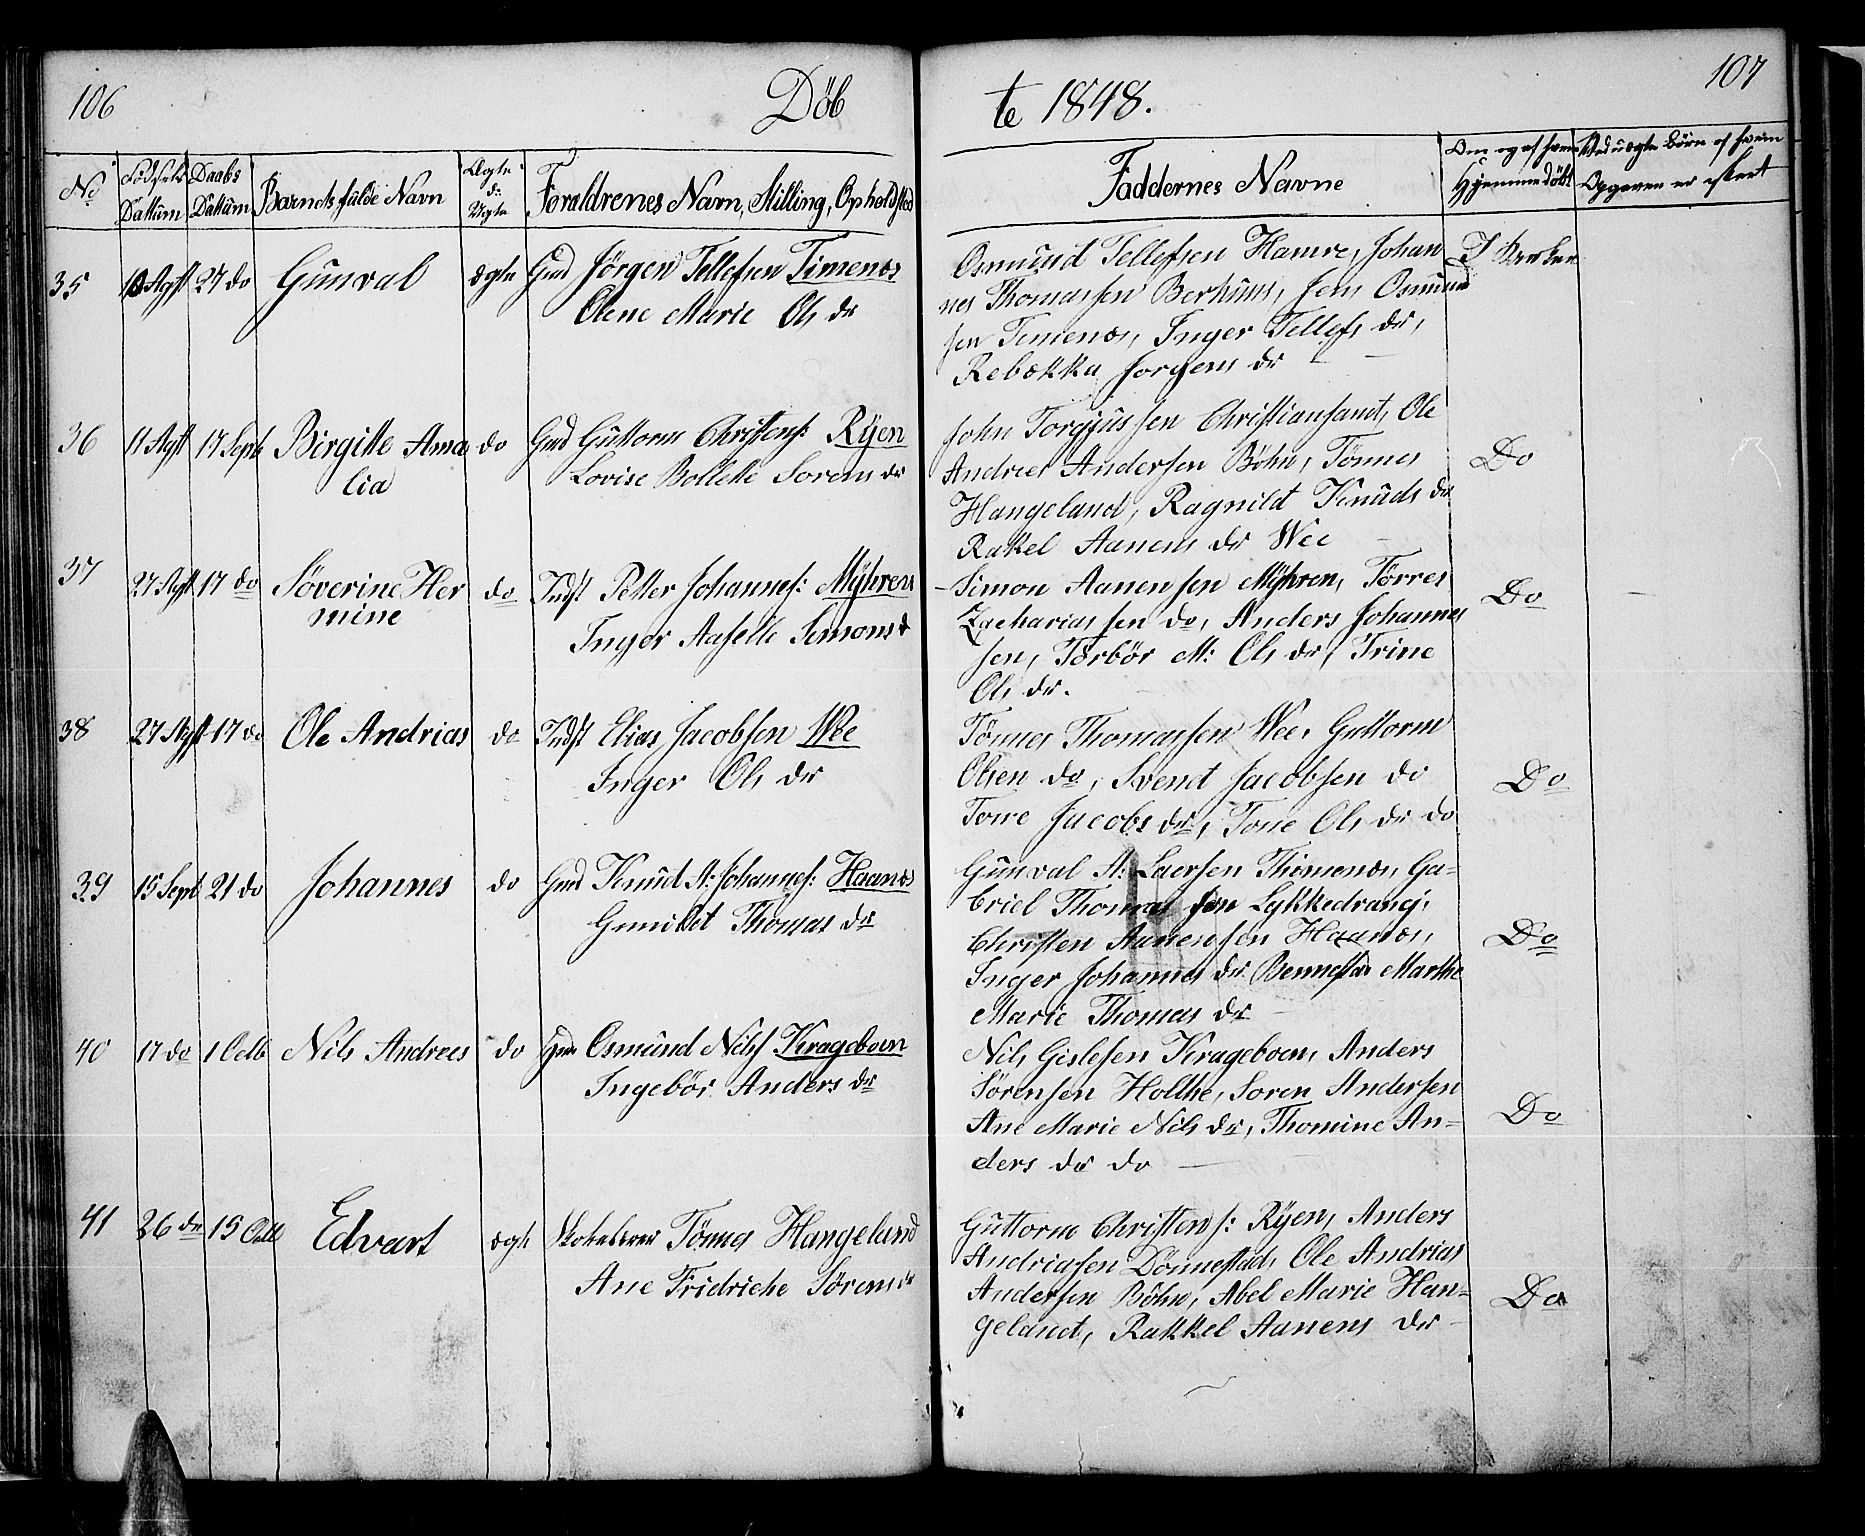 106
Döb
te 1848.
107
No
Fødsels Dattum
Daabs Dattum
Barnets fulde Navn
Ægte el: Uægte
Foraldrenes Navn, Stilling, Opholdsted
Faddernes Navne
Om og af hvem Hjemmedøbt
Ved uægte Børn af hvem Opgaven er skeet
35 10 Agst 27 do Gunval ægte Gmd Jörgen Tellefsen Timenes
Olene Marie Ols dr
Osmund Tellefsen Hamre, Johan
nes Thomassen Berhuus, Jens Osmund
sen Timenæs, Inger Tellefs dr,
Rebækka Jorgens dr
I Kirken
36 11 Agst 17 Septb Birgitte Ama
lia
do Gmd Guttorm Christens: Ryen
Lovise Bollette Sorens dr
John Torgjussen Christiansand, Ole
Andreas Andersen Böhn, Tönnes
Hangeland, Ragnild Knuds dr
Rakel Aanens dr Wee
Do
37 27 Agst 17 do Söverine Her
mine
do Indst Petter Johannes: Myhren
Inger Aaselle Simons d
Simon Aanensen Myhren, Törres
Zachariassen do, Anders Johannes
sen, Torbör M: Ols dr, Trine
Ols dr.
Do
38 27 Agst 17 do Ole Andrias do Indst Elias Jacobsen Wee
Inger Ols dr
Tönnes Thomassen Wee, Guttorm
Olsen do, Svend Jacobsen do
Tone Jacobs dr, Tone Ols dr do
Do
39 15 Sept 21 do Johannes do Gmd Knud A: Johannes: Haanes
Gunild Thomas dr
Gunval A: Laersen Thimenes, Ga=
briel Thomassen Lykkedrang,
Christen Aanensen Haanæs,
Inger Johannes dr Bennestv Marthe
Marie Thomas dr
Do
40 17 do 1 Octb Nils Andreas do Gmd Osmund Nils Krageboen
Ingebör Anders dr
Nils Gislesen Krageboen, Anders
Sörensen Holthe, Soren Andersen
Ane Marie Nils dr, Thomine An=
ders dr do
Do
41 26 do 15 Octb Edvart ægte Skolelærer Tönnes Hangeland
Ane Fridriche Sörens dr
Guttorm Christens: Ryen, Anders
Andriassen Dönnestad, Ole Andrias
Andersen Böhn, Abel Marie Han=
geland, Rakkel Aanens dr
Do